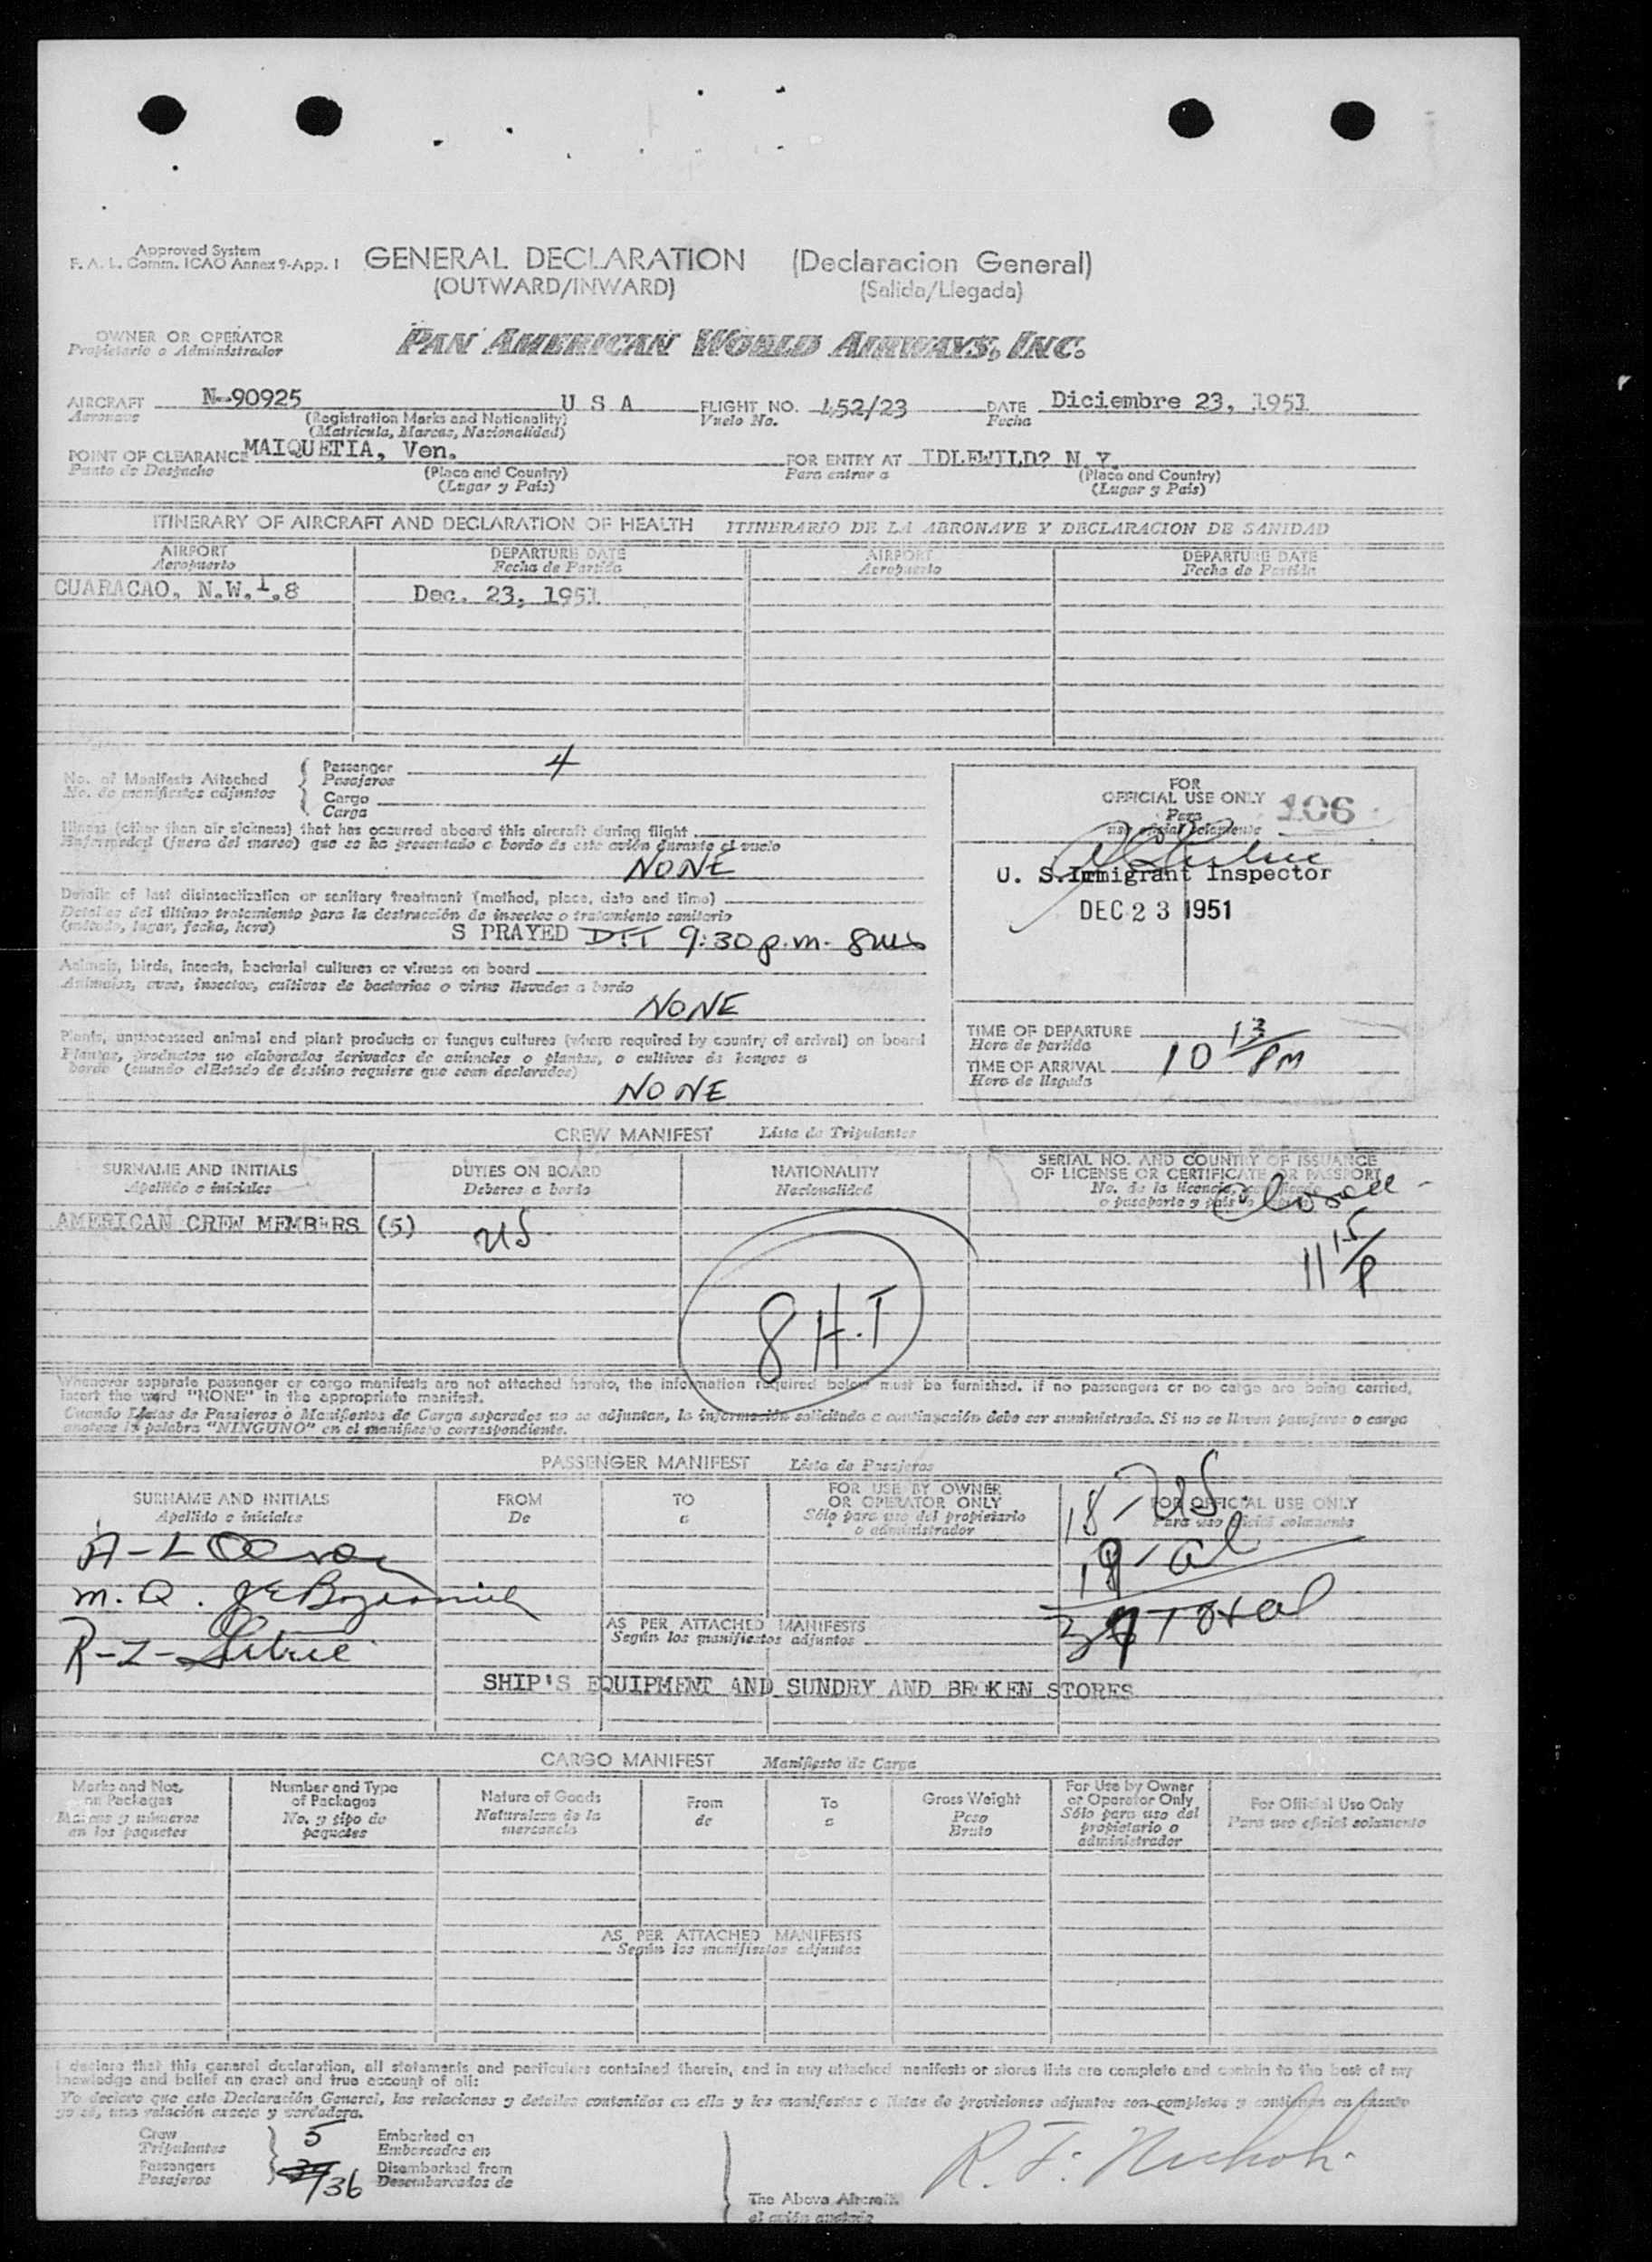 Approved System
F. A. L. Comm. ICAO Annex 9-App. 1
GENERAL DECLARATION (Declaracion General)
(OUTWARD/INWARD) (Salida/Llegada)
OWNER OR OPERATOR
Propietario o Administrador
PAN AMERICAN WORLD AIRWAYS, INC.
AIRCRAFT N-90925 U S A FLIGHT NO. 452/23 DATE Diciembre 23, 1951
Aeronave (Registration Marks and Nationality) Vuelo No. Fecha
(Matricula, Marcas, Nacionalidad)
POINT OF CLEARANCE MAIQUETIA, Ven. FOR ENTRY AT IDLEWILD? N.Y.
Punto de Despacho (Place and Country) Para entrar a (Place and Country)
(Lugar y Pais) (Lugar y Pais)
ITINERARY OF AIRCRAFT AND DECLARATION OF HEALTH ITINERARIO DE LA AERONAVE Y DECLARACION DE SANIDAD
AIRPORT DEPARTURE DATE AIRPORT DEPARTURE DATE
Aeropuerto Fecha de Partida Aeropuerto Fecha de Partida
CUARACAO, N.W.1.8 Dec. 23, 1951
No. of Manifests Attached
No. de manifiestos adjuntos
Passenger 4
Pasajeros
Cargo
Carga
Illness (other than air sickness) that has occurred aboard this aircraft during flight
Enfermedad (fuera del mareo) que se ha presentado a bordo de este avión durante el vuelo
NONE
Details of last disinsectization or sanitary treatment (method, place, date and time)
Detalles del último tratamiento para la destrucción de insectos o tratamiento sanitario
(método, lugar, fecha, hora)
S PRAYED 9:30 p.m.
Animals, birds, insects, bacterial cultures or viruses on board
Animales, aves, insectos, cultivos de bacterias o virus llevados a bordo
NONE
Plants, unprocessed animal and plant products or fungus cultures (where required by country of arrival) on board
Plantas, productos no elaborados derivados de animales o plantas, o cultivos de hongos a
bordo (cuando el Estado de destino requiere que sean declarados)
NONE
FOR
OFFICIAL USE ONLY 106
Para
uso oficial solamente
U. S. Immigrant Inspector
DEC 23 1951
TIME OF DEPARTURE
Hora de partida
TIME OF ARRIVAL 10 13/PM
Hora de llegada
CREW MANIFEST Lista de Tripulantes
SURNAME AND INITIALS DUTIES ON BOARD NATIONALITY SERIAL NO. AND COUNTRY OF ISSUANCE
OF LICENSE OR CERTIFICATE OR PASSPORT
Apellido e iniciales Deberes a bordo Nacionalidad No. de la licencia, certificado
o pasaporte y pais
AMERICAN CREW MEMBERS (5) US
11 15/P
8 H.T
Whenever separate passenger or cargo manifests are not attached hereto, the information required below must be furnished. If no passengers or no cargo are being carried,
insert the word "NONE" in the appropriate manifest.
Cuando Listas de Pasajeros o Manifiestos de Carga separados no se adjuntan, la información solicitada a continuación debe ser suministrada. Si no se llevan pasajeros o carga
anotese la palabra "NINGUNO" en el manifiesto correspondiente.
PASSENGER MANIFEST Lista de Pasajeros
SURNAME AND INITIALS FROM TO FOR USE BY OWNER
OR OPERATOR ONLY FOR OFFICIAL USE ONLY
Apellido e iniciales De a Sólo para uso del propietario
o administrador Para uso oficial solamente
18-US
19-al
37 Total
AS PER ATTACHED MANIFESTS
Según los manifiestos adjuntos
SHIP'S EQUIPMENT AND SUNDRY AND BROKEN STORES
CARGO MANIFEST Manifiesto de Carga
Marks and Nos.
on Packages
Marcas y números
en los paquetes
Number and Type
of Packages
No. y tipo de
paquetes
Nature of Goods
Naturaleza de la
mercancia
From
de
To
a
Gross Weight
Peso
Bruto
For Use by Owner
or Operator Only
Sólo para uso del
propietario o
administrador
For Official Use Only
Para uso oficial solamente
AS PER ATTACHED MANIFESTS
Según los manifiestos adjuntos
I declare that this general declaration, all statements and particulars contained therein, and in any attached manifests or stores lists are complete and contain to the best of my
knowledge and belief an exact and true account of all:
Yo declaro que esta Declaración General, las relaciones y detalles contenidos en ella y los manifiestos o listas de provisiones adjuntos son completos y contienen en cuanto
yo sé, una relación exacta y verdadera.
Crew 5 Embarked on
Tripulantes Embarcados en
Passengers 36 Disembarked from
Pasajeros Desembarcados de
R. F. Nichols
The Above Aircraft
el avión anotado